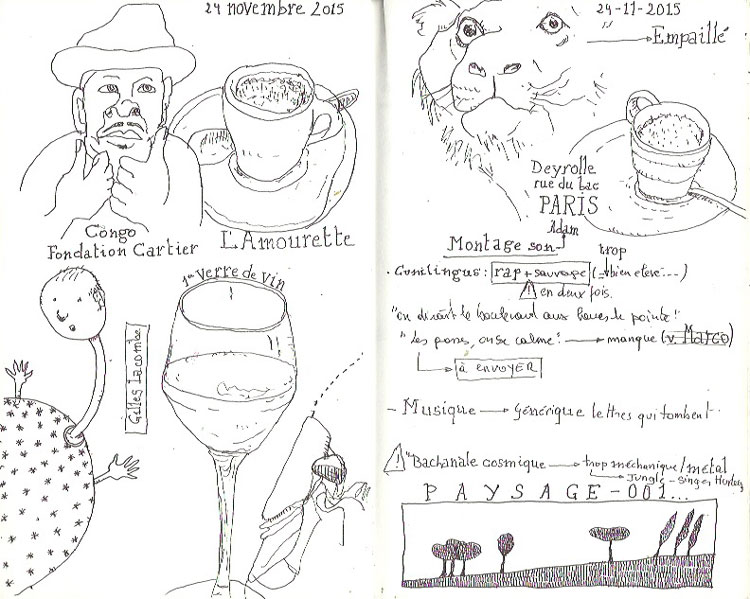 24 novembre 2015
Congo
Fondation Cartier
L'Amourette
1er Verre de vin
Gilles Lacombe
24-11-2015
Empaillé
Deyrolle
rue du bac
PARIS
Adam
Montage son
trop
Cunilingus: rap + sauvage (= bien élevé...)
! en deux fois.
"en dirait le boulevard aux
pointe!
" les pores, on se calme! manque (v. Marco)
à ENVOYER
- Musique générique lettres qui tombent
! "Bachanale cosmique trop méchanique/métal
Jungle - singer
PAYSAGE-001...